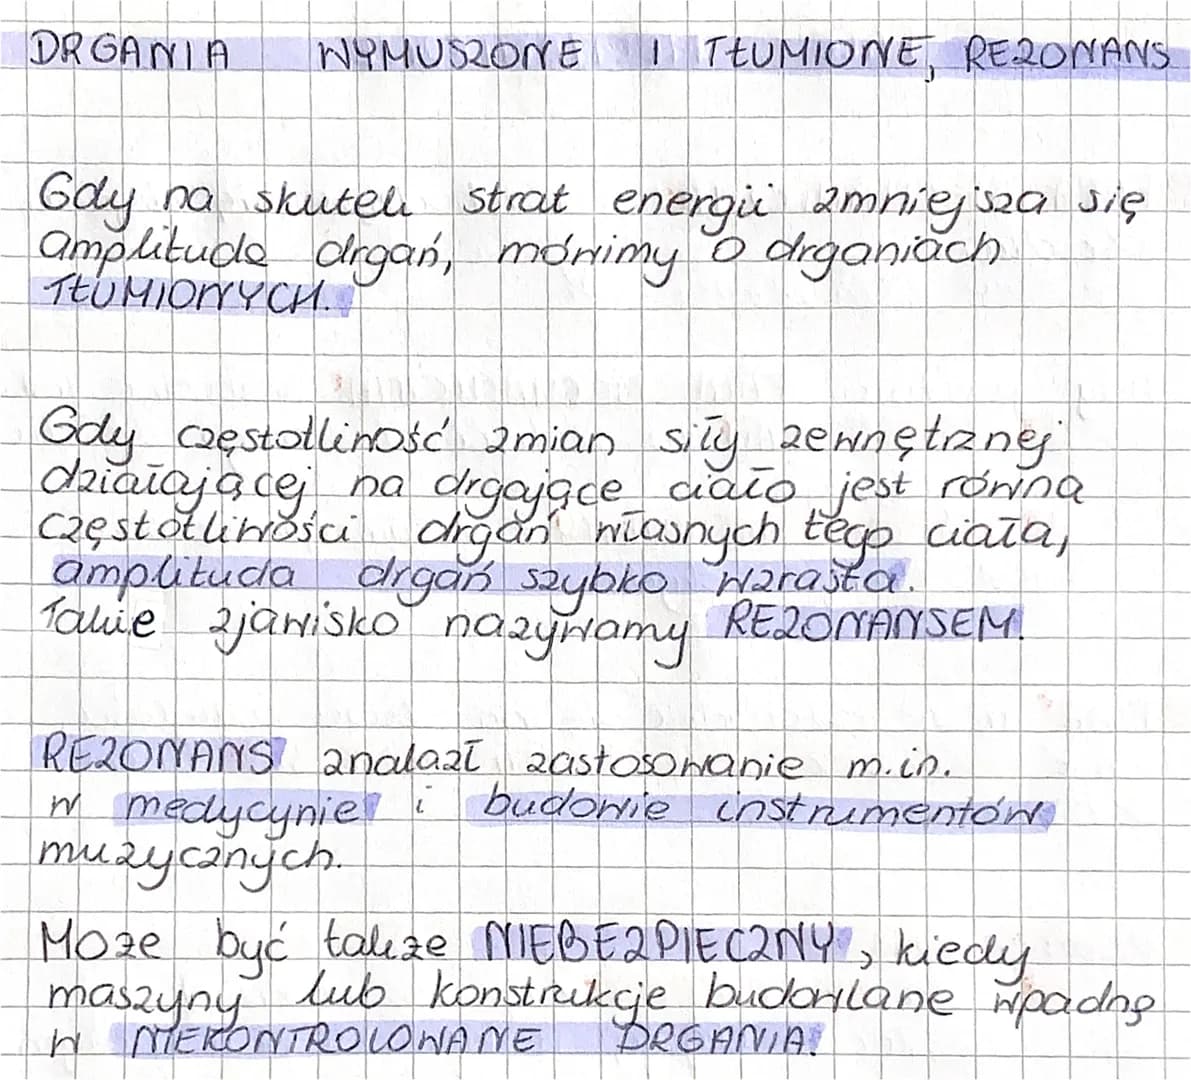 DRGANIA WYMUSZONE I TŁUMIONE, REZONANS
Gdy na skutek strat energii zmniejsza się
amplituda drgań, mówimy o drganiach
TŁUMIONYCH.
Gdy częstotliwość zmian siły zewnętrznej
działającej na drgające ciało jest równa
częstotliwości drgań własnych tego ciała,
amplituda drgań szybko wzrasta.
Takie zjawisko nazywamy REZONANSEM.
REZONANS znalazł zastosowanie m.in.
w medycynie i budowie instrumentów
muzycznych.
Może być także NIEBEZPIECZNY, kiedy
maszyny lub konstrukcje budowlane wpadną
w NIEKONTROLOWANE DRGANIA!